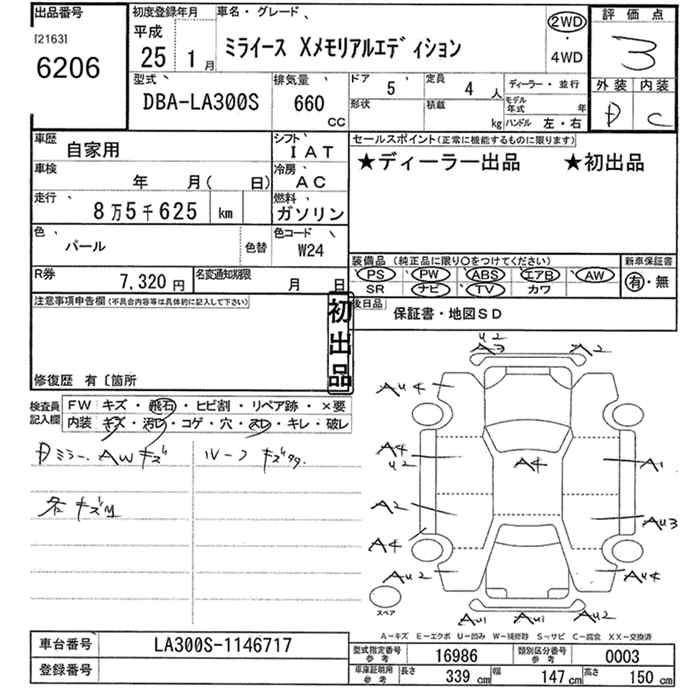 出品番号
[2163]
6206
初度登録年月
平成
25 1月
車名・グレード
ミライース Xメモリアルエディション
2WD
・
4WD
評価点
3
外装 内装
D C
型式
DBA-LA300S
排気量
660
CC
ドア
5
定員
4人
形状
積載
kg
ディーラー・並行
モデル年式 年
ハンドル 左・右
車歴
自家用
シフト
IAT
車検
年 月( 日)
冷房
AC
走行
8万5千625 km
燃料
ガソリン
色
パール
色替
色コード
W24
R券
7,320円
名変通知期限
月 日
セールスポイント(正常に機能するものに限ります)
★ディーラー出品 ★初出品
装備品(純正品に限り○をつけてください)
PS PW ABS エアB AW
SR ナビ TV カワ
新車保証書
有・無
後日品
保証書・地図SD
注意事項申告欄(不具合内容等は具体的に記入して下さい)
初出品
修復歴 有〔箇所
検査員記入欄
FW キズ・飛石・ヒビ割・リペア跡・×要
内装 キズ・汚レ・コゲ・穴・スレ・キレ・破レ
Dミラー、AWキズ
ルーフ キズ
各キズ凹
U2
A3 A2
AU4
A4
U2
A4
A1
A2
AU3
A4
AU2
AU4
スペア
AU1 AU1 AU2
A−キズ E−エクボ U−凹み W−補修跡 S−サビ C−腐食 XX−交換済
車台番号
LA300S-1146717
登録番号
型式指定番号
参考
16986
類別区分番号
参考
0003
車庫証明用
参考
長さ 339cm 幅 147cm 高さ 150cm